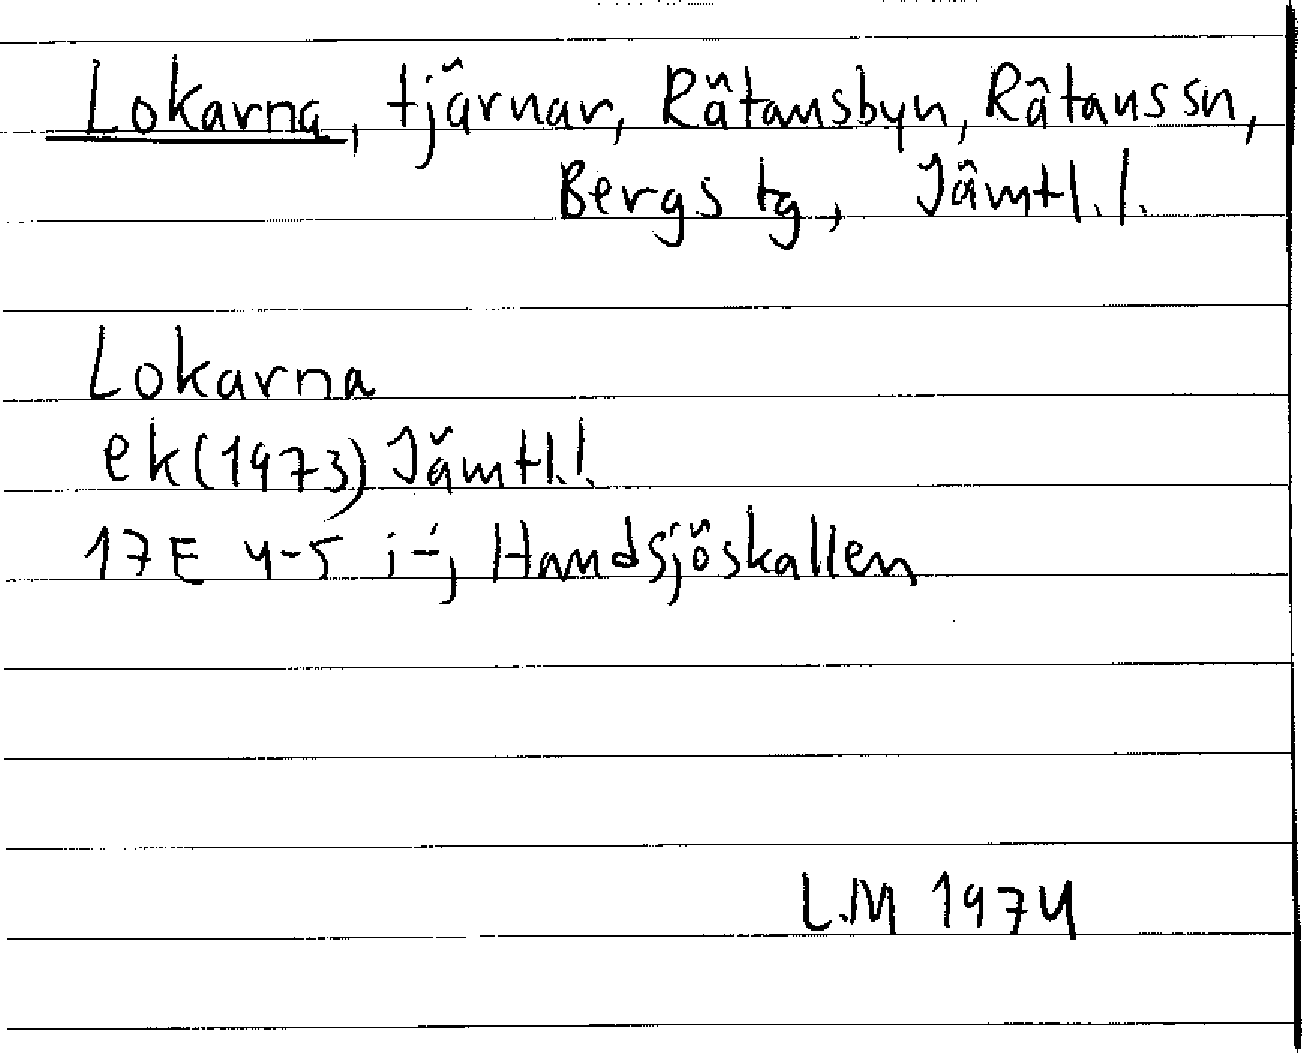 Lokarna, tjärnar, Rätansbyn, Rätans sn,
Bergs tg, Jämtl. l.
Lokarna
ek (1973) Jämtl. l.
17E 4-5 i-j Handsjöskallen
L.M 1974